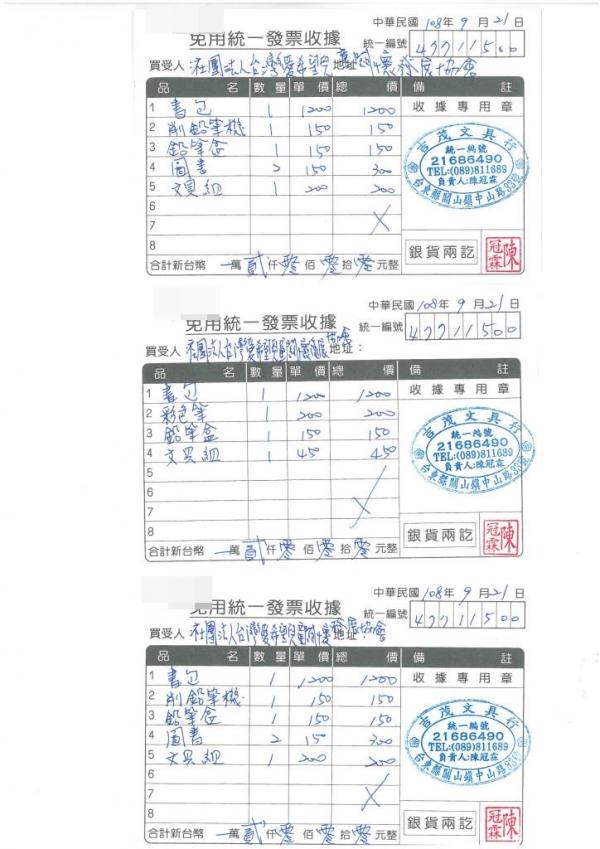 中華民國 108年 9月 21日
免用統一發票收據
統一編號 47711500
買受人 社團法人台灣愛希望兒童關懷發展協會 地址：
品名 數量 單價 總價 備註
1 書包 1 1200 1200 收據專用章
2 削鉛筆機 1 150 150
3 鉛筆盒 1 150 150
4 圖書 2 150 300
5 文具組 1 200 200
6
7
8
吉茂文具行
統一編號
21686490
TEL:(089)811689
負責人:陳冠霖
台東縣關山鎮中山路83號
合計新台幣 萬貳仟零佰零拾零元整 銀貨兩訖 陳冠霖
中華民國 108年 9月 21日
免用統一發票收據
統一編號 47711500
買受人 社團法人台灣愛希望兒童關懷發展協會 地址：
品名 數量 單價 總價 備註
1 書包 1 1200 1200 收據專用章
2 彩色筆 1 200 200
3 鉛筆盒 1 150 150
4 文具組 1 450 450
5
6
7
8
吉茂文具行
統一編號
21686490
TEL:(089)811689
負責人:陳冠霖
台東縣關山鎮中山路83號
合計新台幣 萬貳仟零佰零拾零元整 銀貨兩訖 陳冠霖
中華民國 108年 9月 21日
免用統一發票收據
統一編號 47711500
買受人 社團法人台灣愛希望兒童關懷發展協會 地址：
品名 數量 單價 總價 備註
1 書包 1 1200 1200 收據專用章
2 削鉛筆機 1 150 150
3 鉛筆盒 1 150 150
4 圖書 2 150 300
5 文具組 1 200 200
6
7
8
吉茂文具行
統一編號
21686490
TEL:(089)811689
負責人:陳冠霖
台東縣關山鎮中山路83號
合計新台幣 萬貳仟零佰零拾零元整 銀貨兩訖 陳冠霖